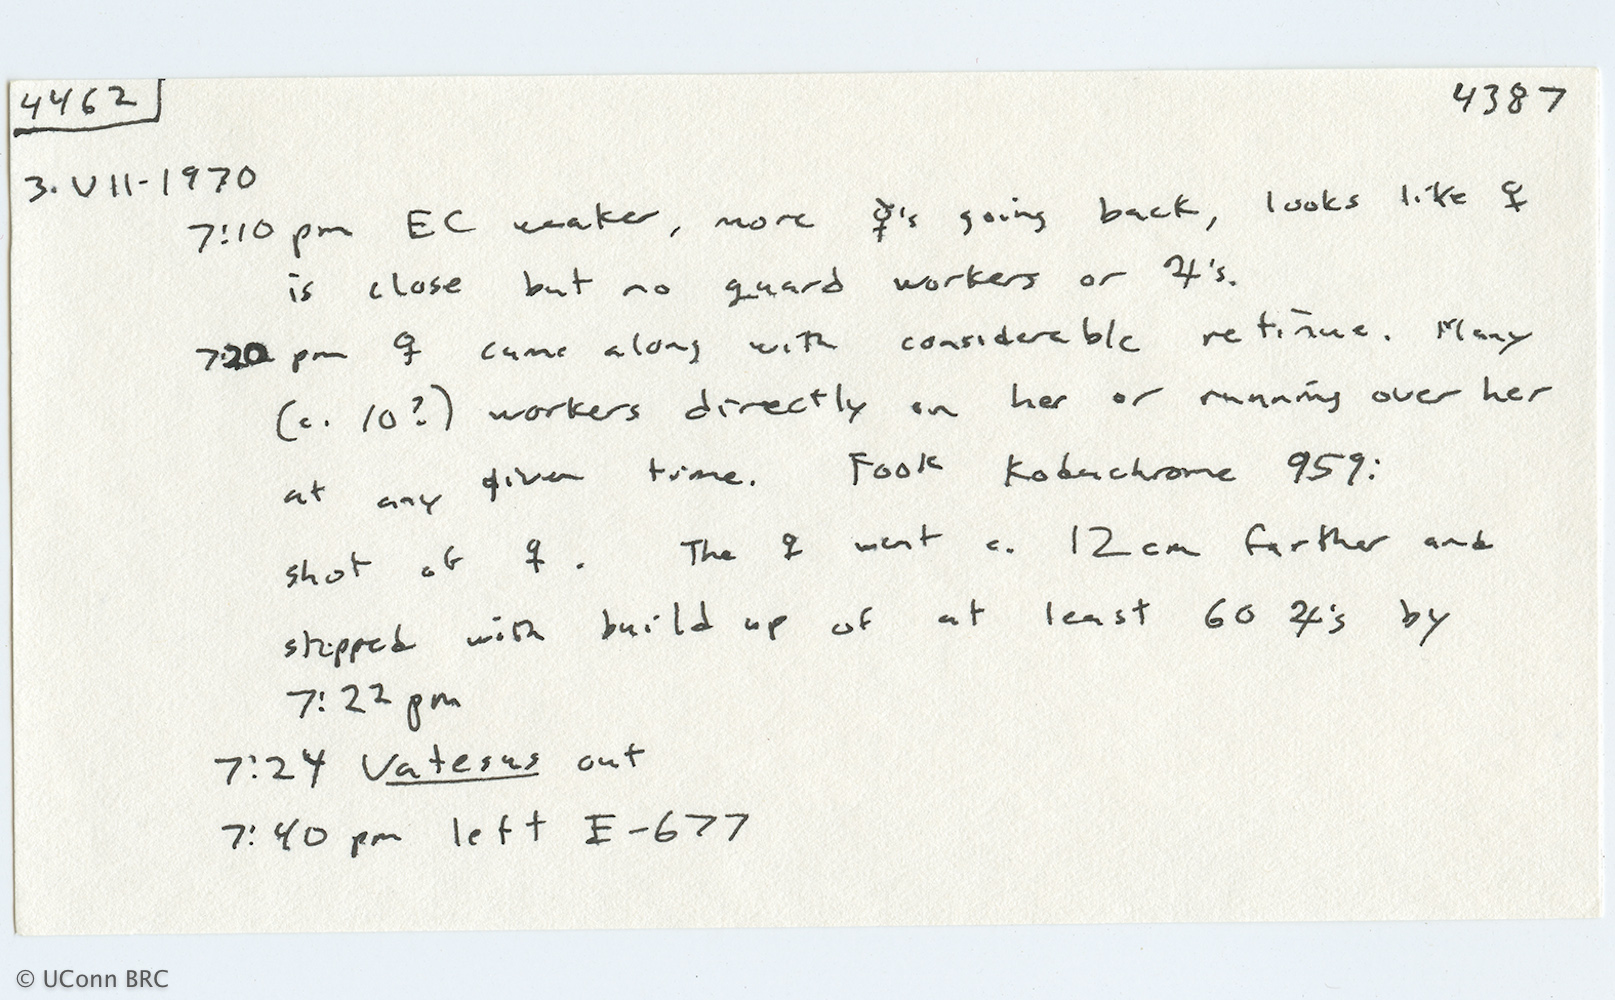 4462 4387
3. VII-1970
7:10 pm EC weaker, more ☿'s going back, looks like ♀
is close but no guard workers or ♃'s.
7:20 pm ♀ came along with considerable retinue. Many
(c. 10?) workers directly on her or running over her
at any given time. Took Kodachrome 959:
shot of ♀. The ♀ went c. 12 cm farther and
stopped with build up of at least 60 ♃'s by
7:22 pm
7:24 Vatesus out
7:40 pm left E-677
© UConn BRC